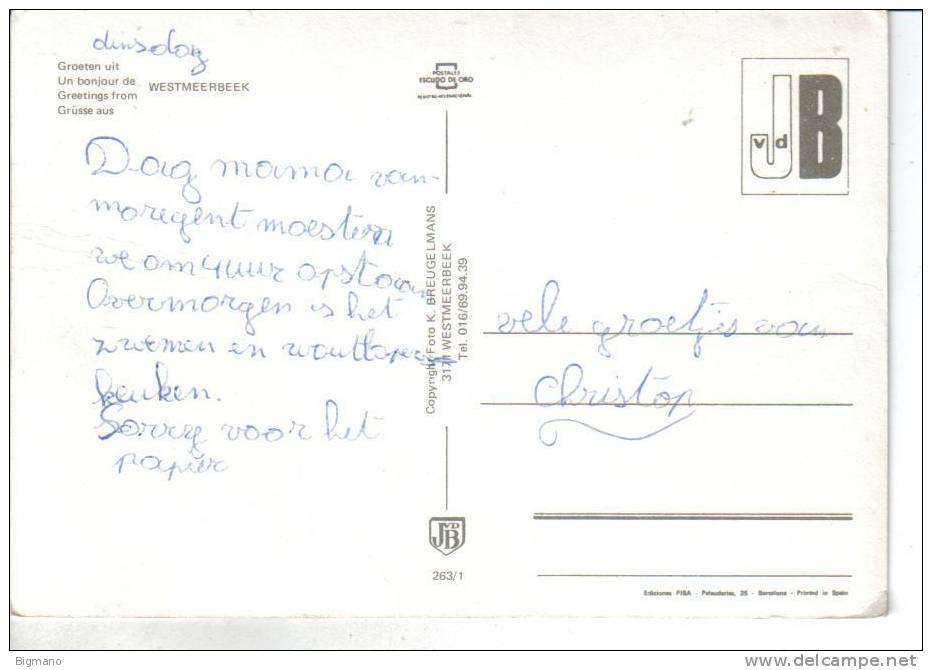 dinsdag
Groeten uit
Un bonjour de
Greetings from
Grüsse aus
WESTMEERBEEK
POSTALES
ESCUDO DE ORO
vd
JB
Dag mama van-
moregent moesten
we om 4 uur opstaan
Overmorgen is het
zwemen en
keuken.
Sorry voor het
papier
Copyright Foto K. BREUGELMANS
3171 WESTMEERBEEK
Tel. 016/69.94.39
vele groetjes van
Christop
JVDB
263/1
Ediciones FISA - Palaudarias, 26 - Barcelona - Printed in Spain
Bigmano
www.delcampe.net